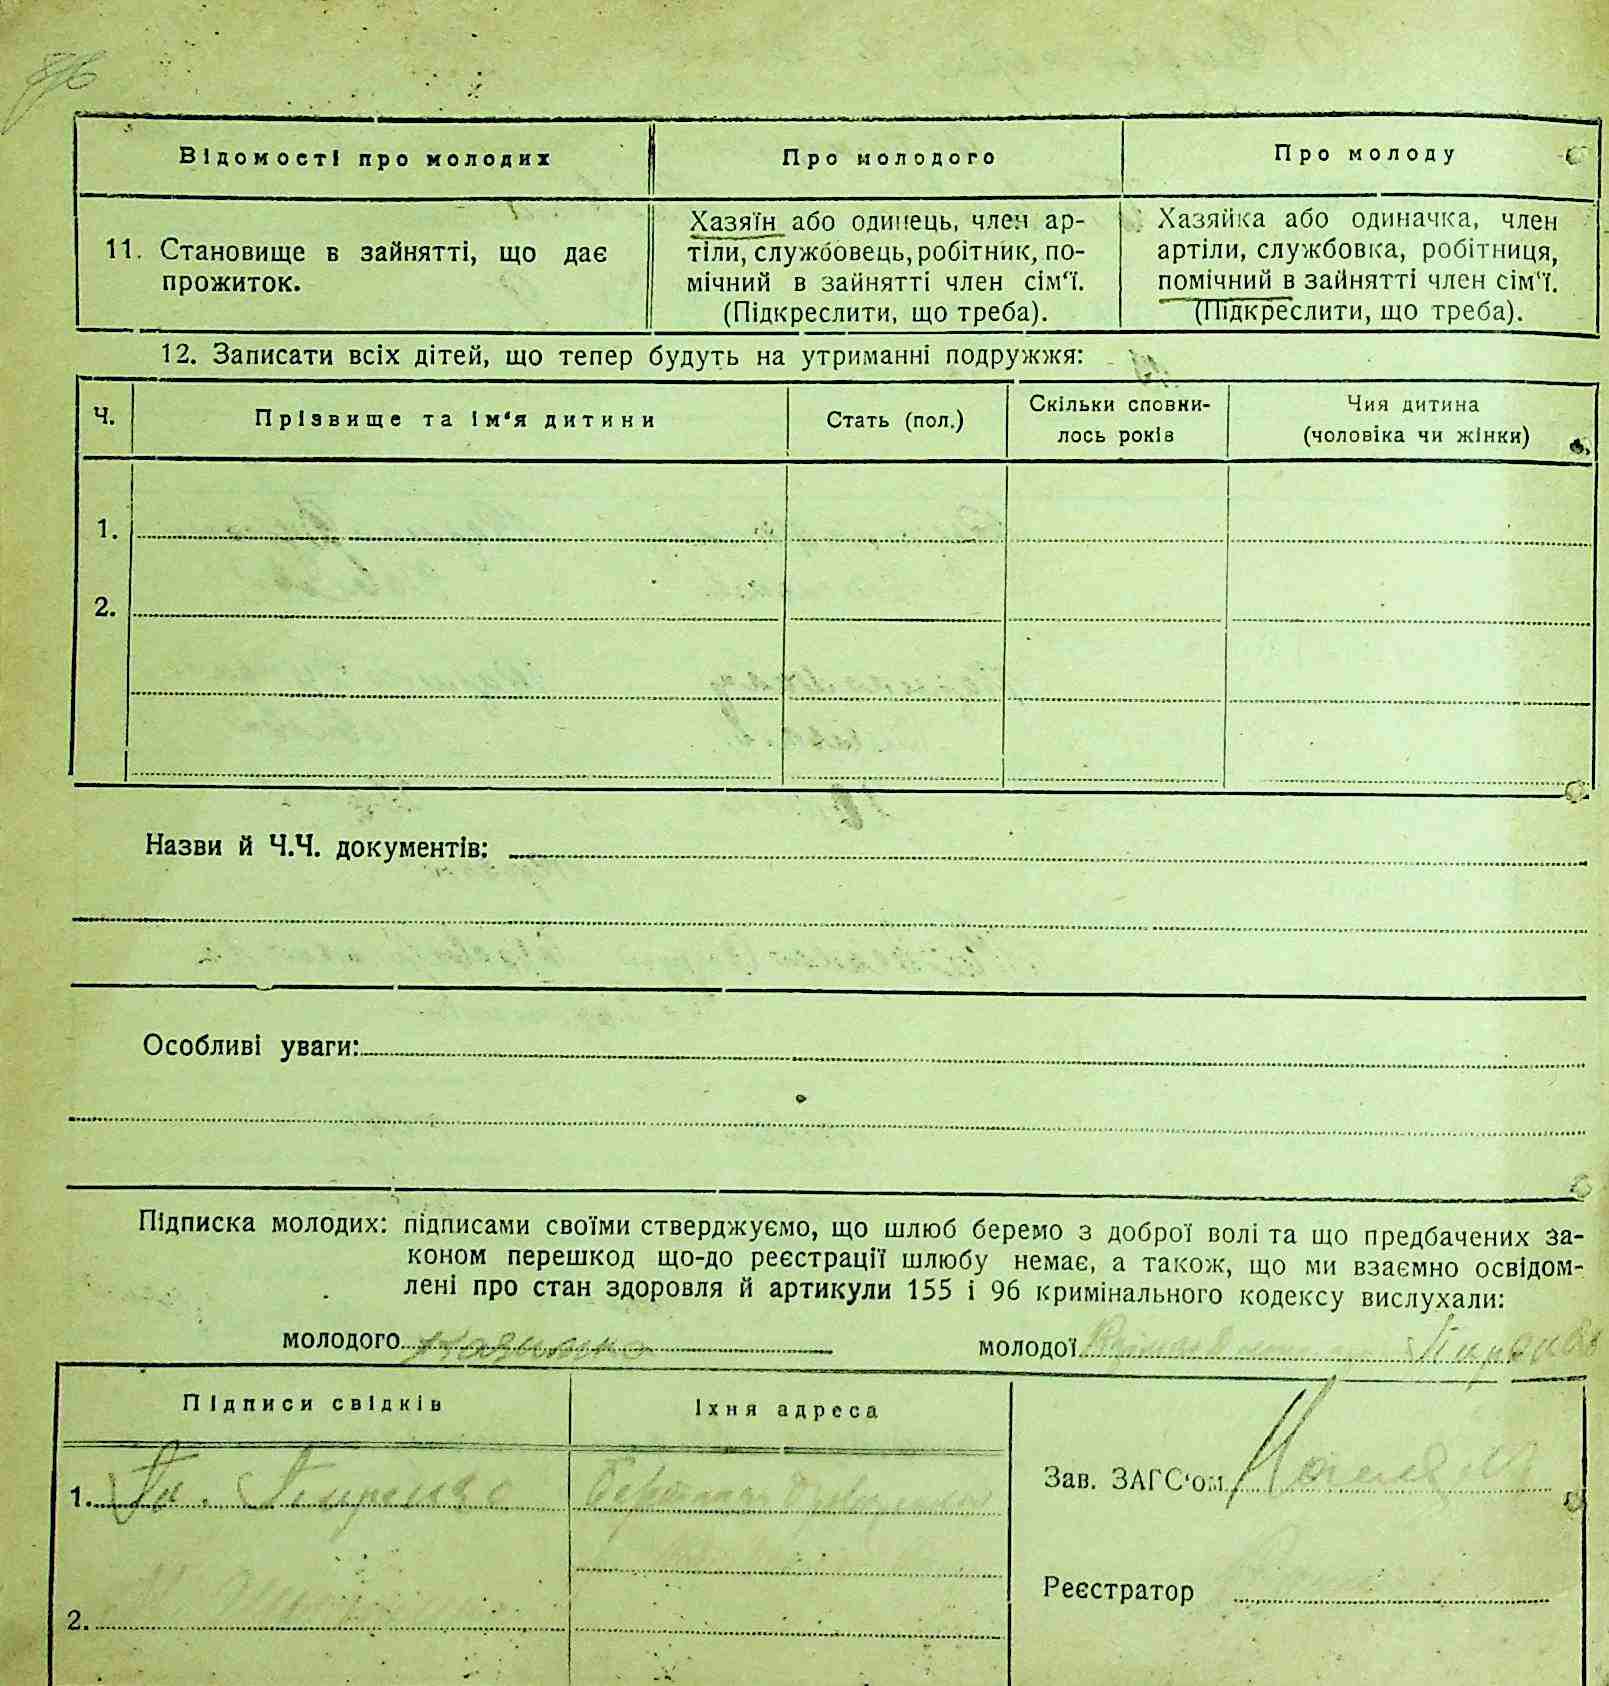 Відомості про молодих
Про молодого
Про молоду
11. Становище в зайнятті, що дає
прожиток.
Хазяїн або одинець, член ар-
тіли, службовець, робітник, по-
мічний в зайнятті член сім'ї.
(Підкреслити, що треба).
Хазяйка або одиначка, член
артіли, службовка, робітниця,
помічний в зайнятті член сім'ї.
(Підкреслити, що треба).
12. Записати всіх дітей, що тепер будуть на утриманні подружжя:
Ч.
Прізвище та ім'я дитини
Стать (пол.)
Скільки сповни-
лось років
Чия дитина
(чоловіка чи жінки)
1.
2.
Назви й Ч.Ч. документів:
Особливі уваги:
Підписка молодих: підписами своїми стверджуємо, що шлюб беремо з доброї волі та що предбачених за-
коном перешкод що-до реєстрації шлюбу немає, а також, що ми взаємно освідом-
лені про стан здоровля й артикули 155 і 96 кримінального кодексу вислухали:
молодого
молодої
Підписи свідків
Їхня адреса
1.
Зав. ЗАГС'ом
Реєстратор
2.